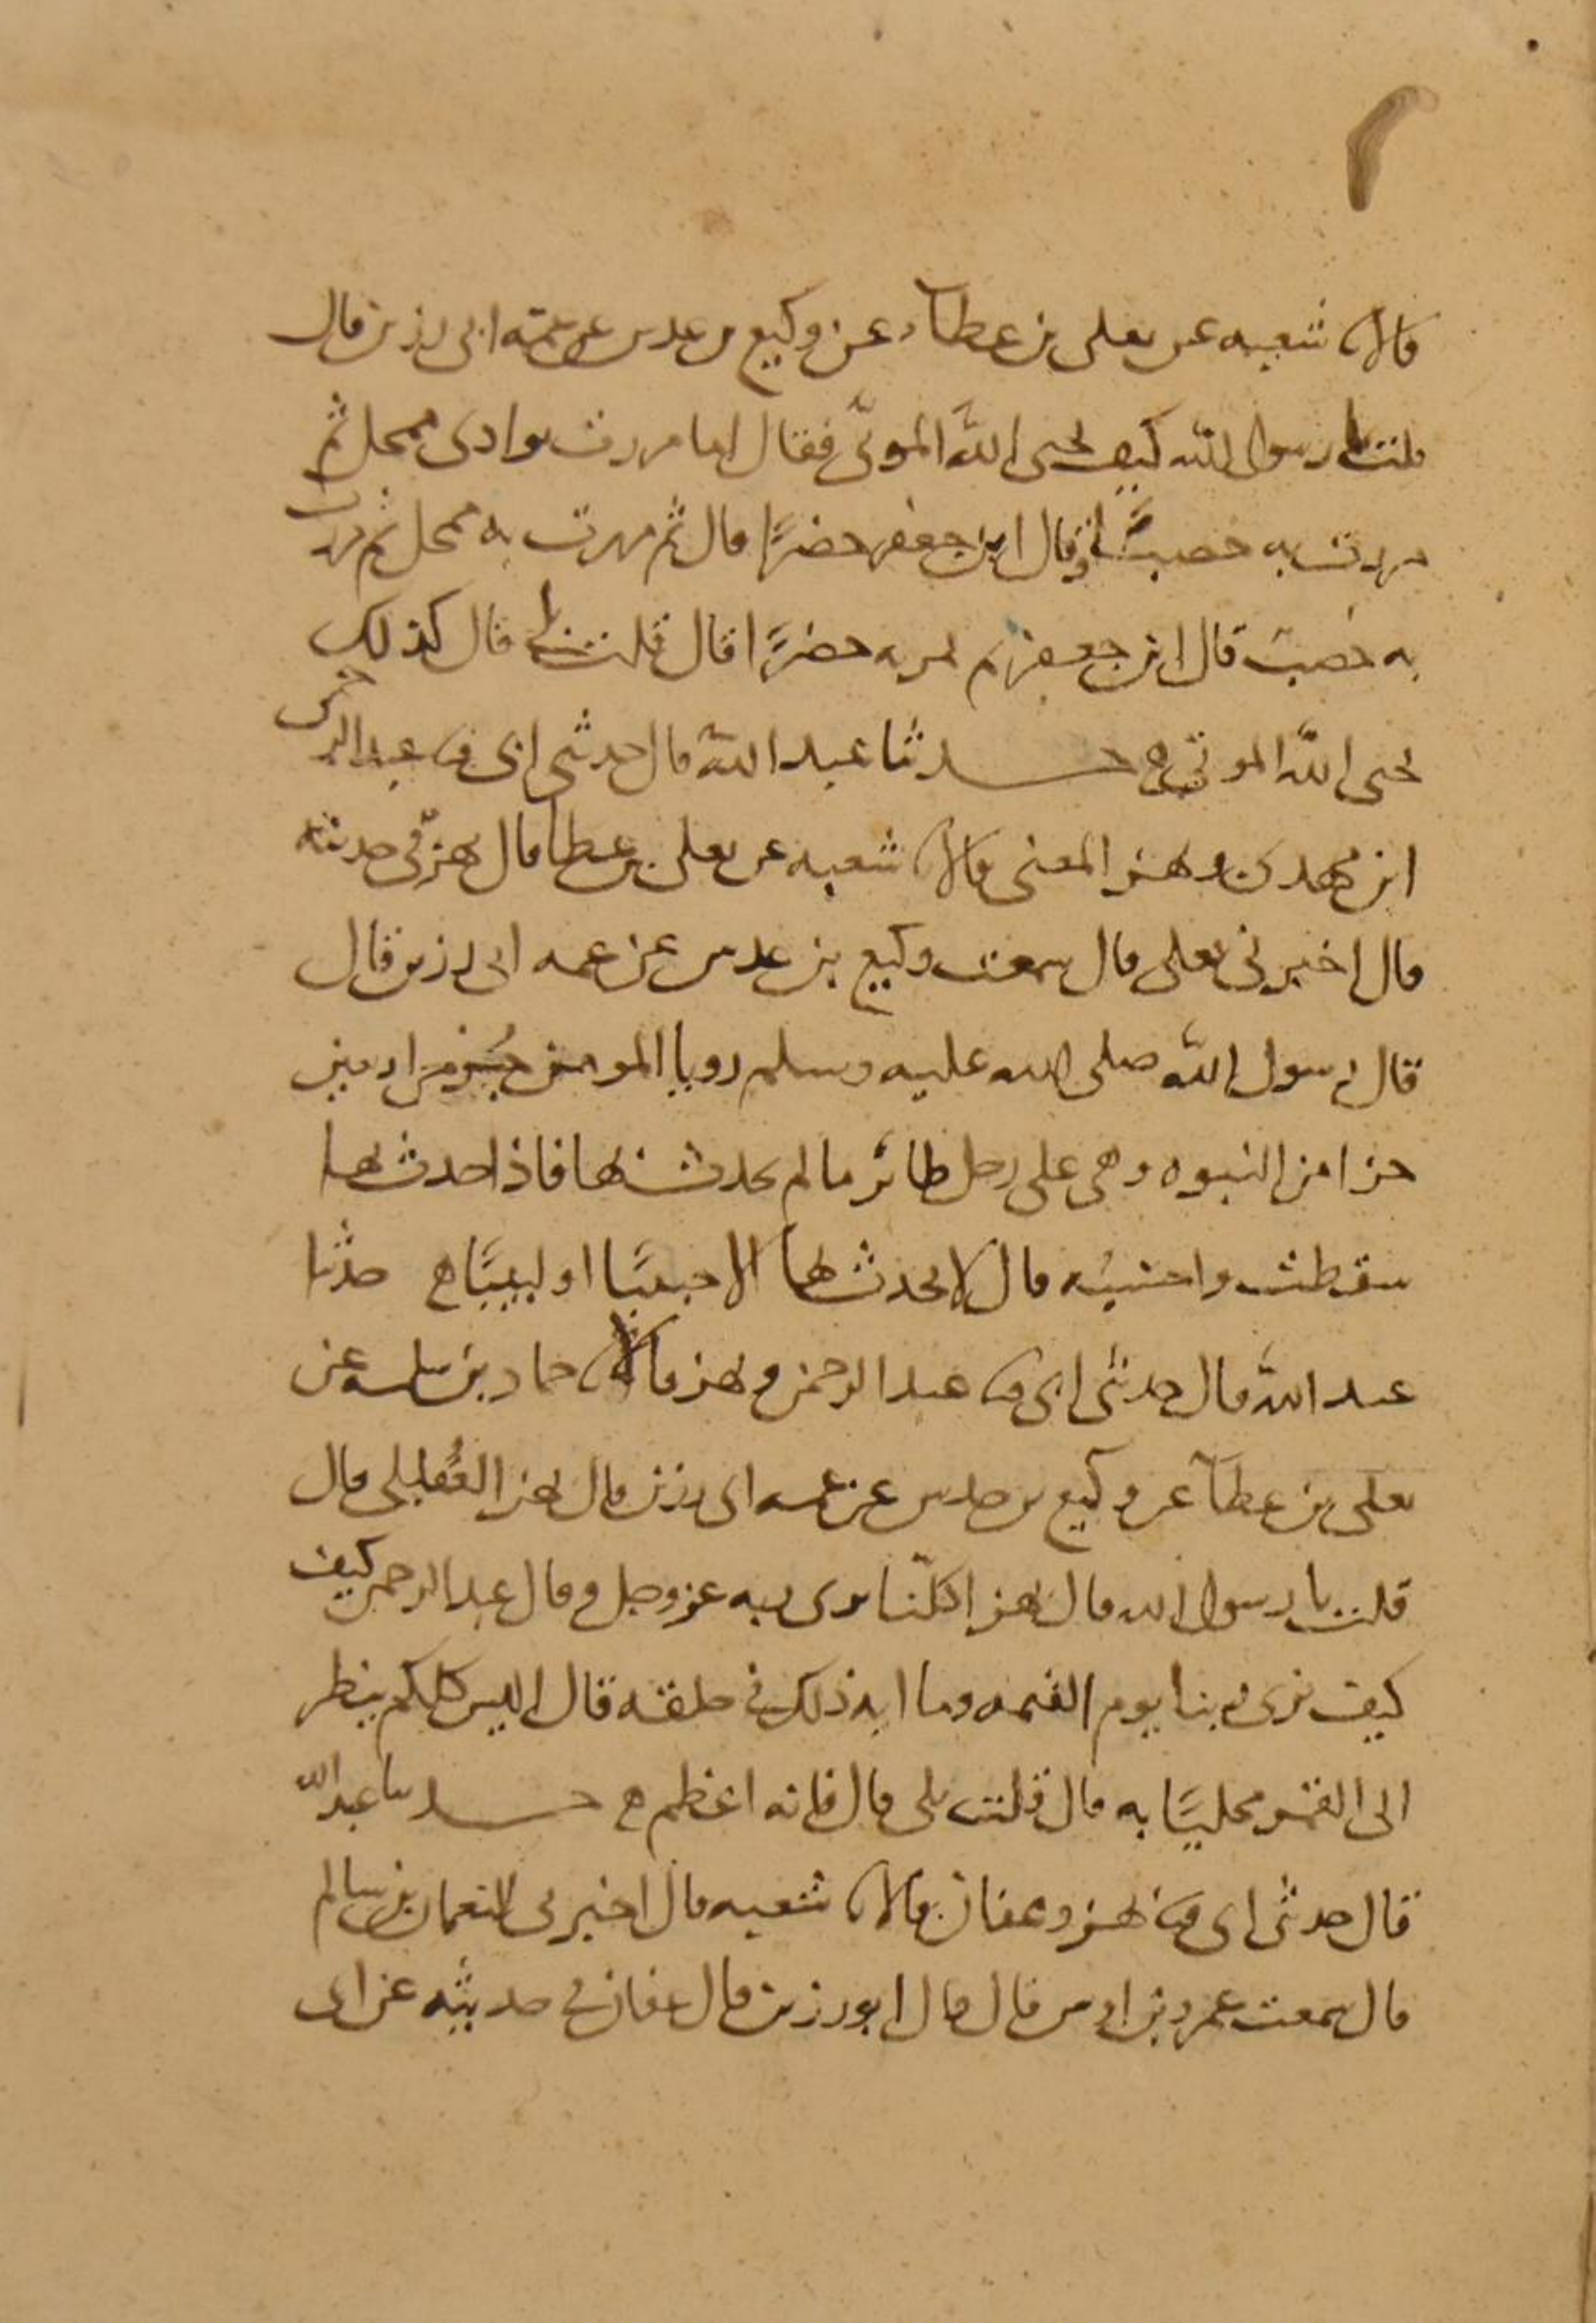 قالا ثنا شعبه عن يعلى بن عطاء عن وكيع بن عدس عن عمه ابى رزين قال
قلت يا رسول الله كيف يحيى الله الموتى فقال اما مررت بوادى ممحل ثم
مررت به خصبًا وقال ابن جعفر خضرًا قال ثم مررت به ممحل ثم مررت
به خصب قال ابن جعفر ثم تمر به خضرًا قال قلت بلى قال كذلك
يحيى الله الموتى حدثنا عبد الله قال حدثنى ابى ثنا عبد الرحمن
ابن مهدى وبهز المعنى قالا ثنا شعبه عن يعلى بن عطا قال بهز فى حديثه
قال اخبرنى يعلى قال سمعت وكيع بن عدس عن عمه ابى رزين قال
قال رسول الله صلى الله عليه وسلم رويا المومن جزء من اربعين
جزا من النبوه وهى على رجل طائر ما لم يحدث بها فاذا حدث بها
سقطت واحسبه قال لا يحدث بها الا حبيبًا او لبيبًا حدثنا
عبد الله قال حدثنى ابى ثنا عبد الرحمن وبهز قالا ثنا حماد بن سلمه عن
يعلى بن عطآ عن وكيع بن حدس عن عمه ابى رزين قال بهز العُقيلى قال
قلت يا رسول الله قال بهز اكلّنا يرى ربه عز وجل وقال عبد الرحمن كيف
كيف نرى ربنا يوم القيمه وما ايه ذلك فى خلقه قال اليس كلكم ينظر
الى القمر مخليًا به قال قلت بلى قال فانه اعظم حدثنا عبد الله
قال حدثنى ابى ثنا بهز وعفان قالا ثنا شعبه قال اخبرنى النعمان بن سالم
قال سمعت عمرو بن اوس قال قال ابو رزين قال عفان فى حديثه عن ابى